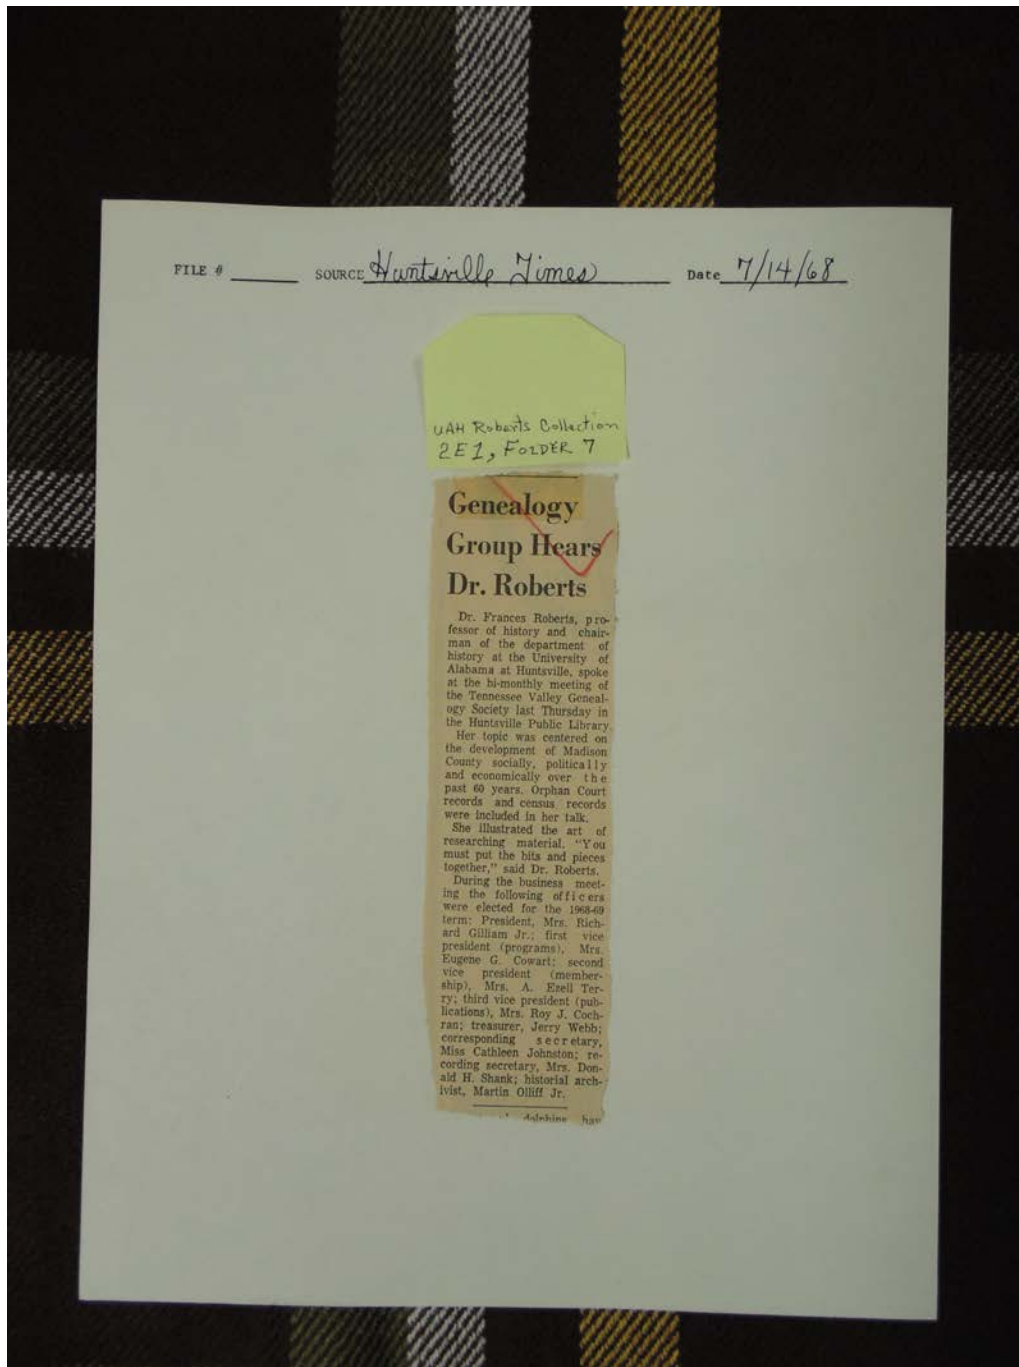 FILE # SOURCE Huntsville Times Date 7/14/68
UAH Roberts Collection
2E1, FOLDER 7
Genealogy
Group Hears
Dr. Roberts
Dr. Frances Roberts, pro-
fessor of history and chair-
man of the department of
history at the University of
Alabama at Huntsville, spoke
at the bi-monthly meeting of
the Tennessee Valley Geneal-
ogy Society last Thursday in
the Huntsville Public Library.
Her topic was centered on
the development of Madison
County socially, politically
and economically over the
past 60 years. Orphan Court
records and census records
were included in her talk.
She illustrated the art of
researching material. "You
must put the bits and pieces
together," said Dr. Roberts.
During the business meet-
ing the following officers
were elected for the 1968-69
term: President, Mrs. Rich-
ard Gilliam Jr.; first vice
president (programs), Mrs.
Eugene G. Cowart; second
vice president (member-
ship), Mrs. A. Ezell Ter-
ry; third vice president (pub-
lications), Mrs. Roy J. Coch-
ran; treasurer, Jerry Webb;
corresponding secretary,
Miss Cathleen Johnston; re-
cording secretary, Mrs. Don-
ald H. Shank; historial arch-
ivist, Martin Olliff Jr.
dolphins hav